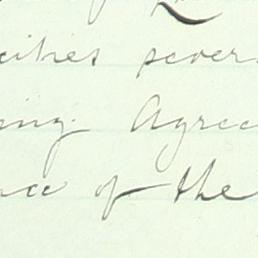 cities sever
ing. Agree
nce of the